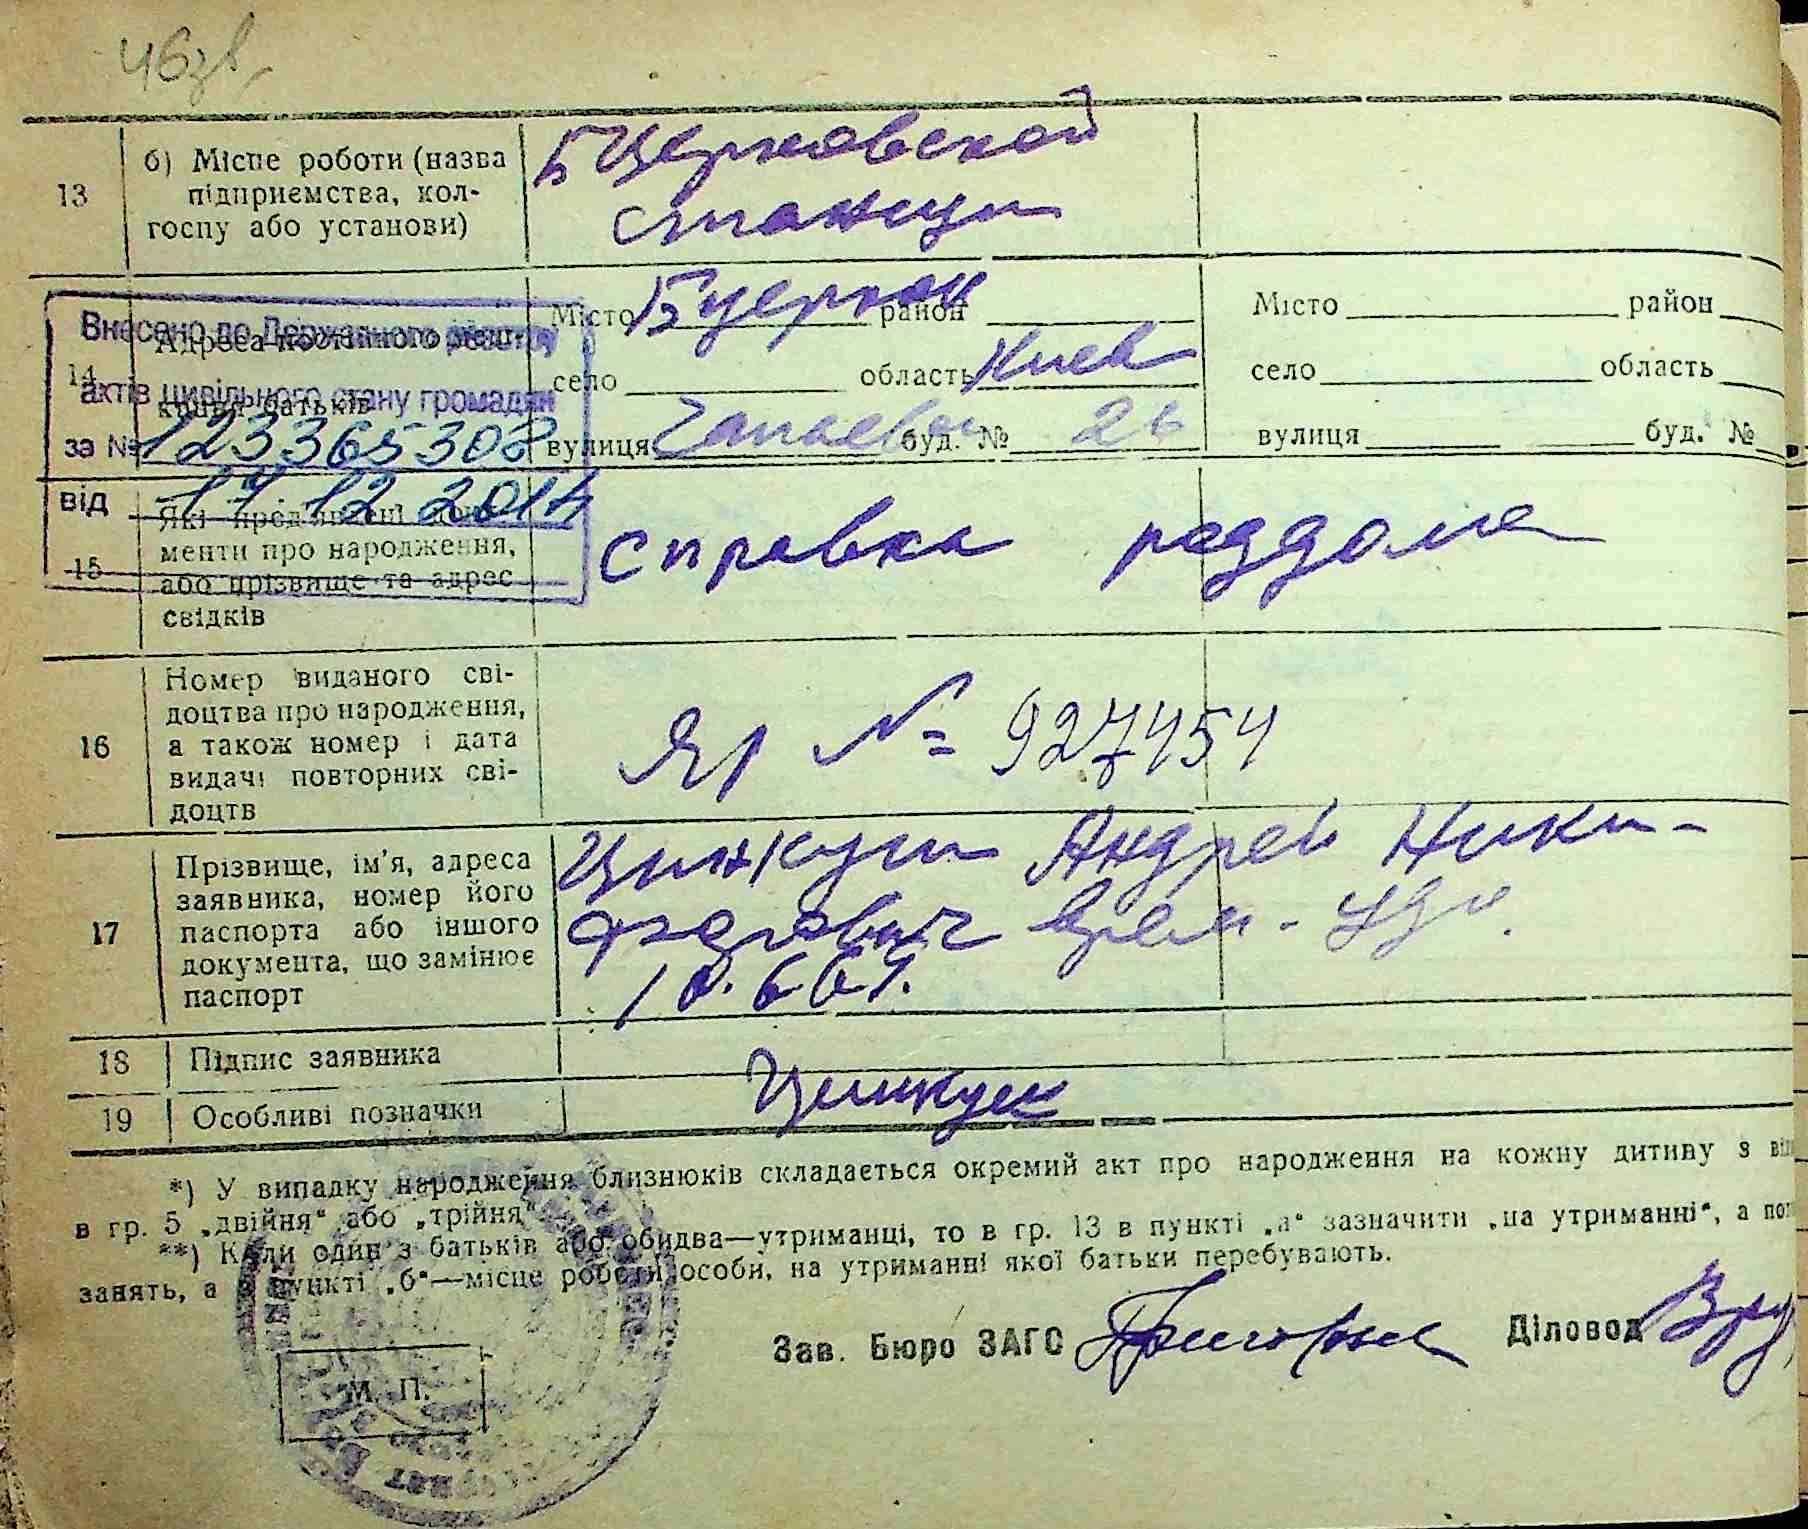 13
б) Місце роботи (назва
підприємства, кол-
госпу або установи)
БЦерковской
станции
14
Адреса постійного
батьків
Місто БЦерков район
село область Киев
вулиця Чапаева буд. № 26
Місто район
село область
вулиця буд. №
Внесено до Державного реєстру
актів цивільного стану громадян
за № 123365302
від 17.12.2014
15
Які пред'явлені доку-
менти про народження,
або прізвище та адрес
свідків
Справка роддома
16
Номер виданого сві-
доцтва про народження,
а також номер і дата
видачі повторних сві-
доцтв
ЯР № 927454
17
Прізвище, ім'я, адреса
заявника, номер його
паспорта або іншого
документа, що замінює
паспорт
Андрей Ники-
форович врем. удо.
18
Підпис заявника
19
Особливі позначки
*) У випадку народження близнюків складається окремий акт про народження на кожну дитину з
в гр. 5 „двійня“ або „трійня“
**) Коли один з батьків або обидва—утриманці, то в гр. 13 в пункті „а“ зазначити „на утриманні“, а
занять, а в пункті „б“—місце роботи особи, на утриманні якої батьки перебувають.
Зав. Бюро ЗАГС
Діловод
М. П.